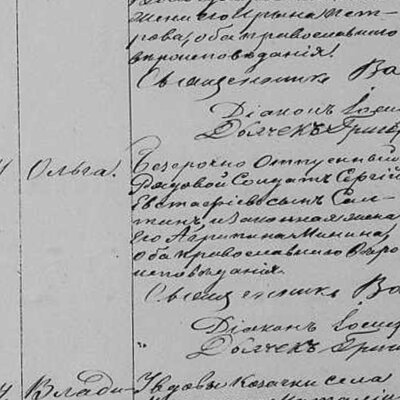 жена его Ирина Пет-
рова, оба православнаго
вероисповедания.
Священникъ Ва
Діаконъ Іоси
Дьячекъ Григ
Ольга. Безсрочно Отпускный
Рядовой Солдатъ Сергій
Евстафіевъ сынъ Сал-
тинъ, и законная жена
его Агрипина Минина,
оба православнаго Веро
исповеданія.
Священникъ Ва
Діаконъ Іосиф
Дьячекъ Григ
Влади- Удовы Козачки села